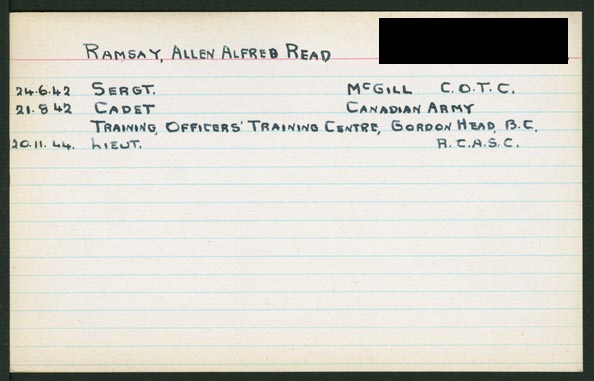 RAMSAY, ALLEN ALFRED READ
24.6.42 SERGT. McGILL C.O.T.C.
21.8 42 CADET CANADIAN ARMY
TRAINING, OFFICERS' TRAINING CENTRE, GORDON HEAD, B.C.
20.11.44. LIEUT. R.C.A.S.C.